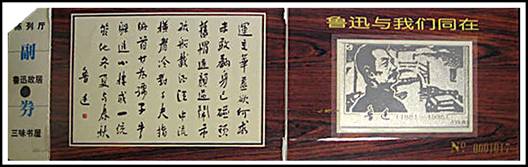 陈列厅
副
鲁迅故居
券
三味书屋
運交華蓋欲何求
未敢翻身已碰頭
舊帽遮顏過鬧市
破船載酒泛中流
橫眉冷對千夫指
俯首甘為孺子牛
躲進小樓成一統
管他冬夏與春秋
魯迅
鲁迅与我们同在
魯迅
(1881-1936)
No 0001017